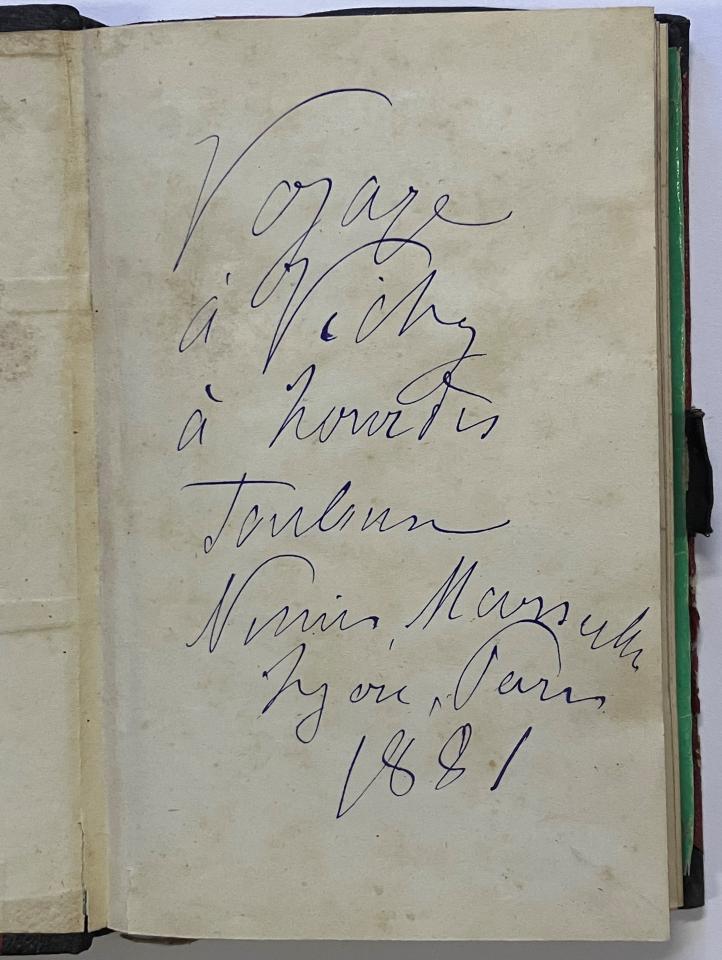 Voyage
à Vichy
à Lourdes
Toulouse
Nimes, Marseille
Lyon, Paris
1881